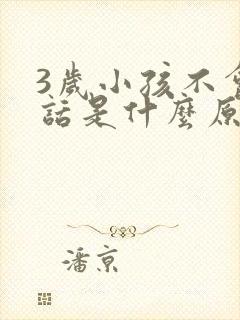 3歲小孩不會
話是什麼原
潘京